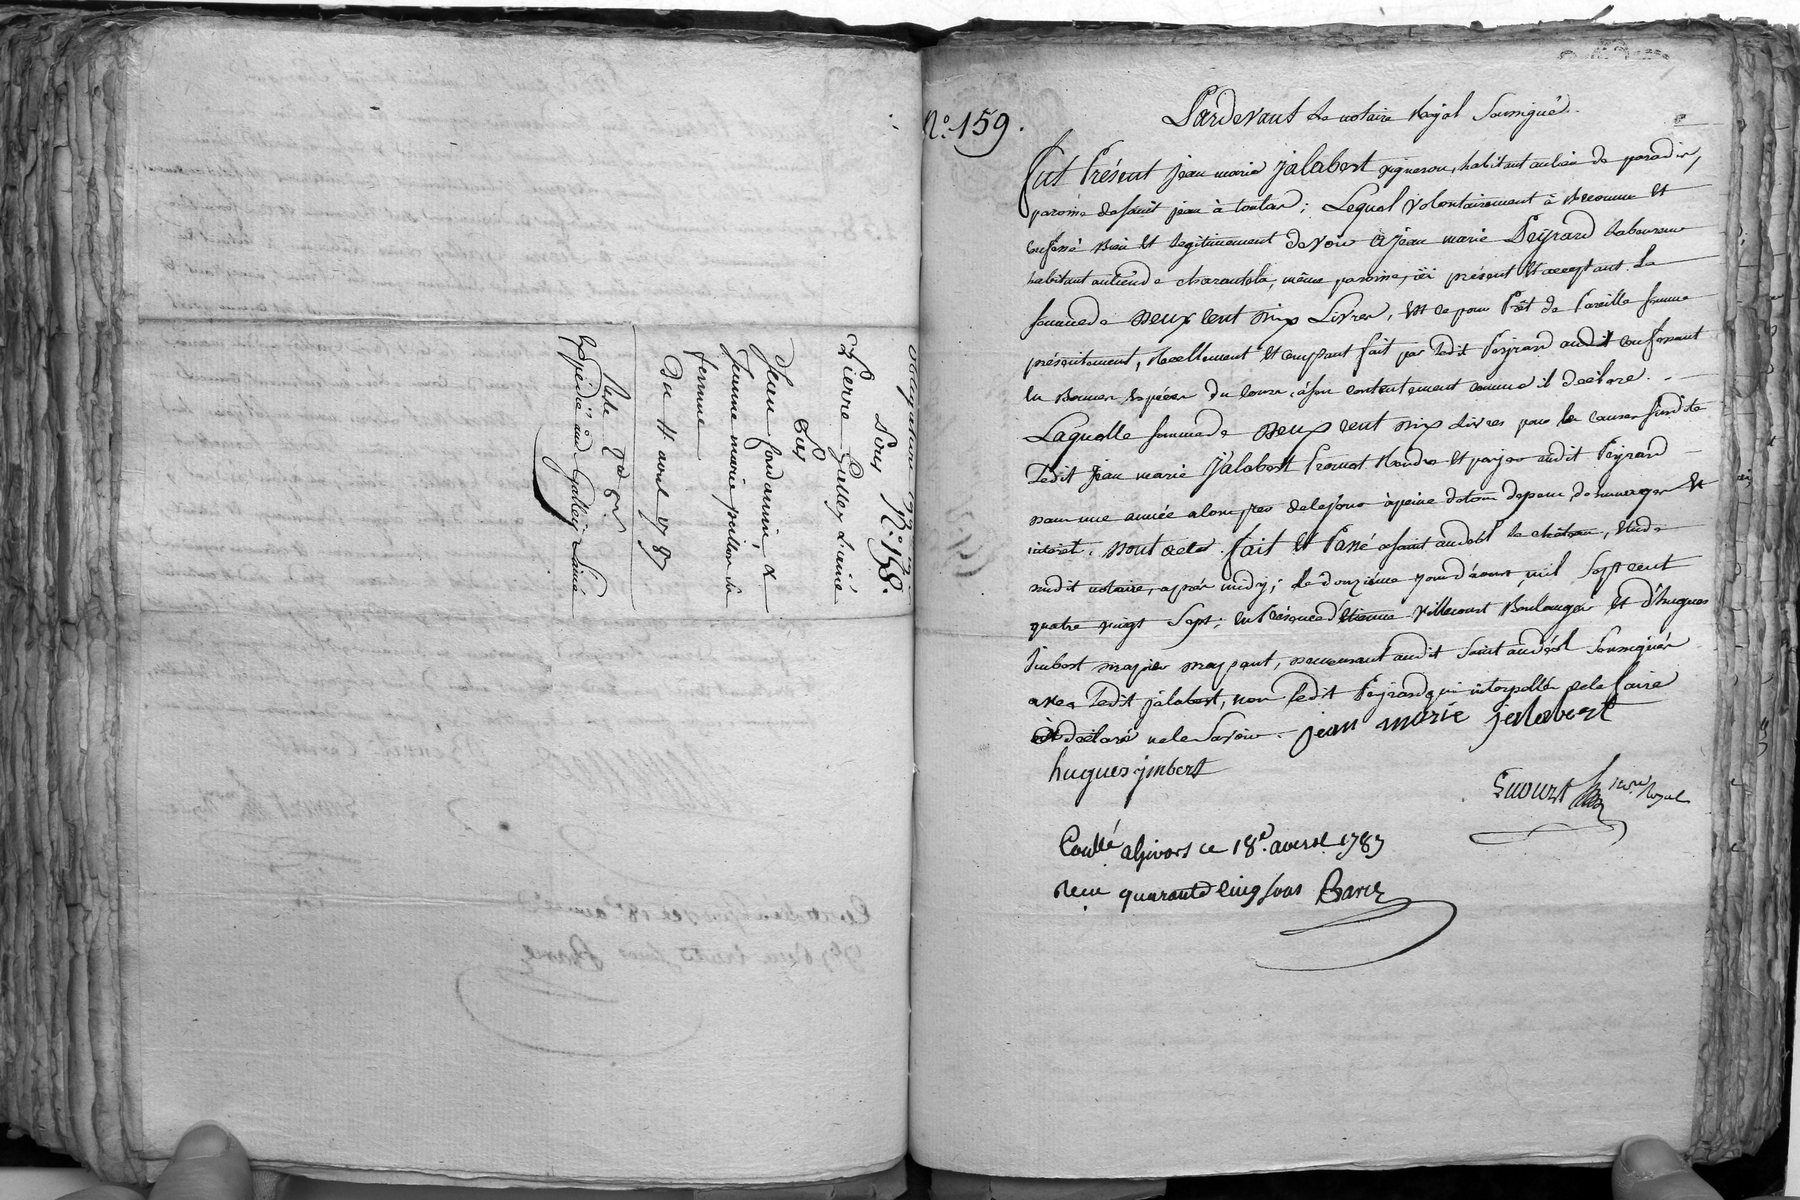 obligation
pour N.° 158.
Pierre Galley L'ainé
Sur
Jean fondannin, &
Jeanne marie pullon sa
femme
Du 11 avril 1787
expédié aud. Galley L'ainé
N.° 159.
Pardevant Le notaire Royal Soussigné.
fut Présent jean marie jalabert vigneron, habitant au lieu de paradis,
paroisse de saint jean à toulas; Lequel volontairement à Reconnu et
confessé Bien et Legitimement devoir à jean marie Peyrard Laboureur
habitant au lieu de charantola, même paroisse, ici présent et acceptant. La
somme de Deux cent dix Livres, et ce pour Prêt de Pareille somme
présentement, Réellement et comptant fait par Ledit Peyrard audit confessant
en Bonnes Espèces du cours, à son contentement comme il déclare.
Laquelle somme de Deux cent dix Livres pour les causes susdites
Ledit jean marie jalabert Promet Rendre et payer audit Peyrard
dans une année alors prés de le jour à peine de tous depens, dommages et
interet. Dont acte. fait et Passé a saint andéol le château, Etude
dudit notaire, après midy; Le douzième jour d'avril mil sept cent
quatre vingt Sept; en Présence d'Etienne villecourt Boulanger et d'hugues
jmbert majeur maçpant, demeurant audit saint andéol soussignés
avec Ledit jalabert, non Ledit Peyrard qui interpellé de le faire
à déclaré ne le Savoir. jean marie jalabert
hugues jmbert
Guourt nore Royal
Conllé a Givors ce 18e. avril 1787
Reçu quarante cinq sous Barez